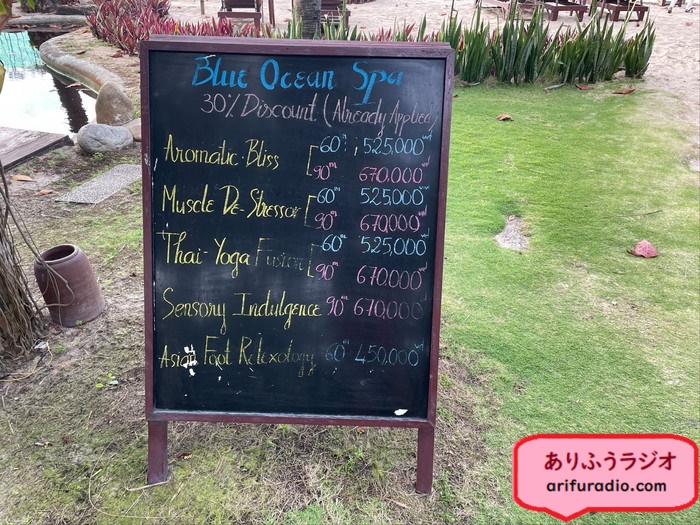 Blue Ocean Spa
30% Discount (Already Applied)
Aromatic Bliss 60m 525,000 vnd
90m 670,000 vnd
Muscle De-Stressor 60m 525,000 vnd
90m 670,000 vnd
Thai-Yoga Fusion 60m 525,000 vnd
90m 670,000 vnd
Sensory Indulgence 90m 670,000
Asian Foot Relexology 60m 450,000 vnd
ありふうラジオ
arifuradio.com